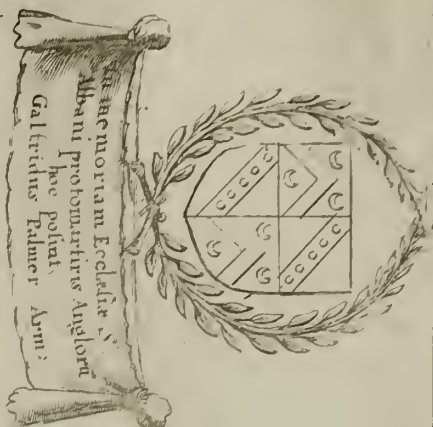 In memoriam Ecclesiæ S
Albani protomartiris Anglorū
hoc posuit,
Galfridus Palmer Arm: